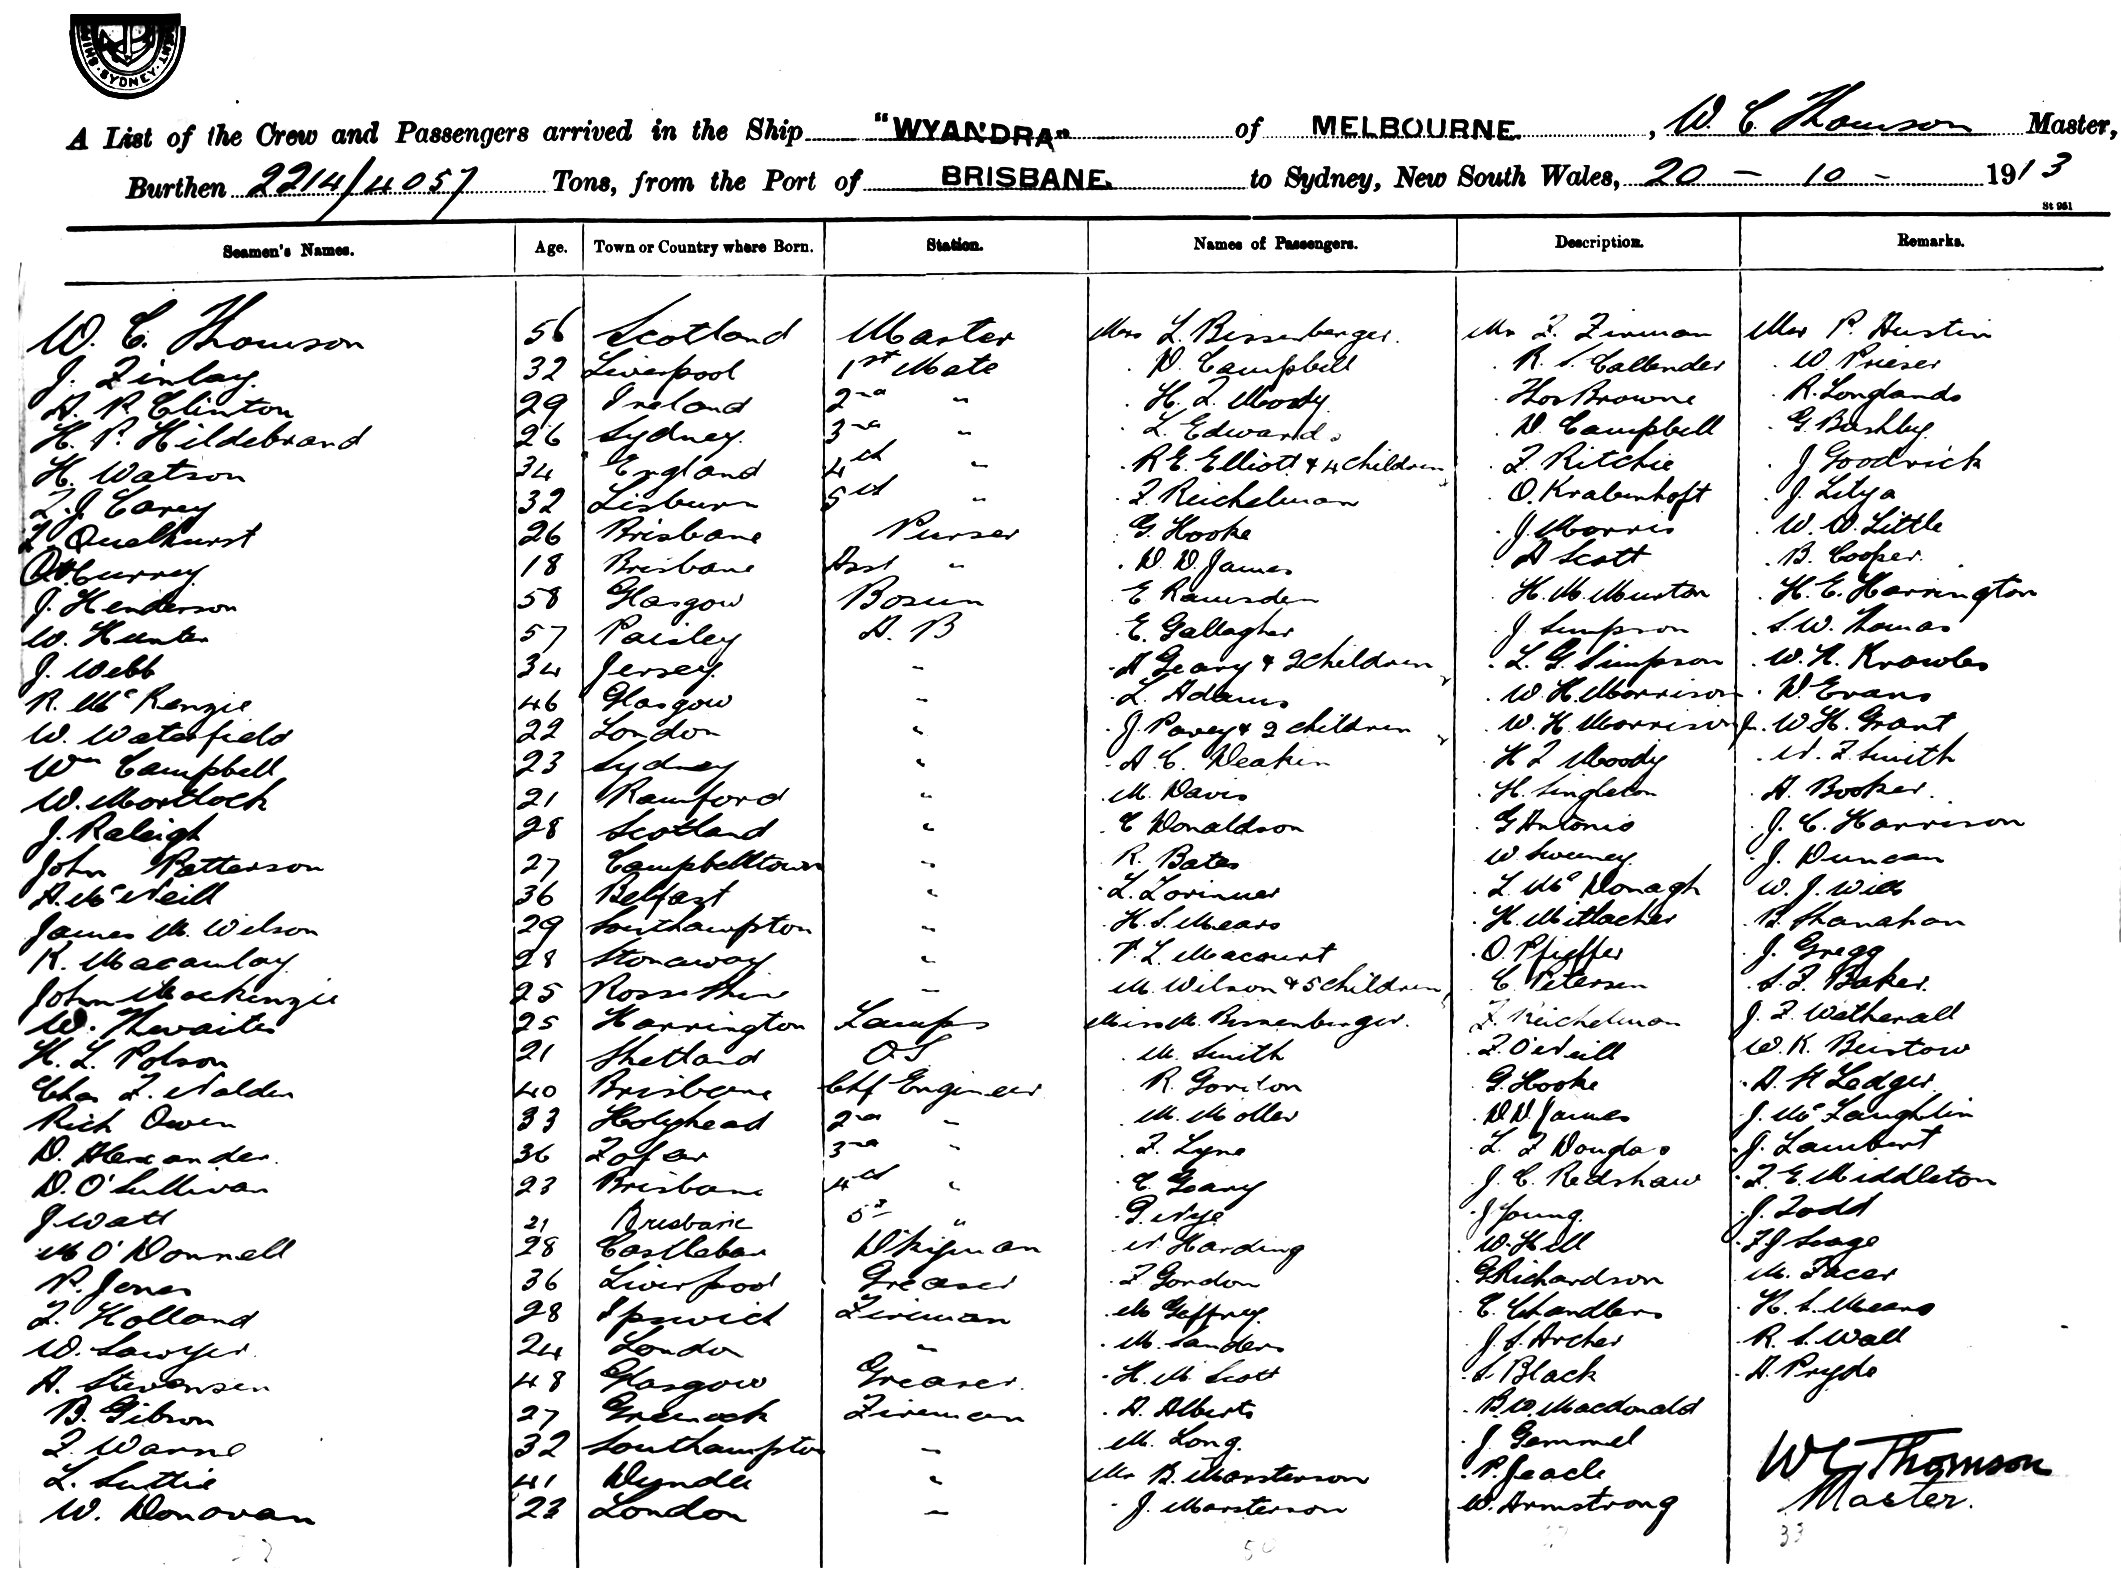 SYDNEY
A List of the Crew and Passengers arrived in the Ship "WYANDRA" of MELBOURNE, W. C. Thomson Master,
Burthen 2214/4057 Tons, from the Port of BRISBANE. to Sydney, New South Wales, 20 - 10 - 1913
St 961
Seamen's Names. Age. Town or Country where Born. Station. Names of Passengers. Description. Remarks.
W. C. Thomson 56 Scotland Master Mrs L. Bissenberger. Mr F. Zirman Mr P. Austin
J. Finlay. 32 Liverpool 1st Mate . D. Campbell . R. S. Callender . W. Prieser
A. P. Clinton 29 Ireland 2nd " . H. F. Moody Thos Browne . R. Longlands
H. P. Hildebrand 26 Sydney. 3rd " . L. Edwards . D. Campbell . G. Bushby.
H. Watson 34 England 4th " . R E. Elliott & 4 children . F. Ritchie . J Goodrick
F. J. Carey 32 Lisburn 5th " . F. Reichelman . O. Krabenhoft . J. Lilya
Quelhurst 26 Brisbane Purser . G. Hooke . J. Morris . W. W. Little
Currey 18 Brisbane Asst " . D. D. James . A Scott . B. Cooper.
J. Henderson 58 Glasgow Bosun . E Ramsden . H. M. Murton . H. E. Harrington
W. Hunter 57 Paisley A. B . E. Gallagher . J Simpson . S. W. Thomas
J. Webb 34 Jersey. " . A Geary & 2 children . L. G. Simpson . W. H. Knowles
R. McKenzie 46 Glasgow " . L. Adams . W. H. Morrison . D. Evans
W. Waterfield 22 London " . J. Pavey & 2 children . W. H. Morrison Jr. . W. H. Grant
Wm Campbell 23 Sydney " . A. C. Deakin . H F Moody . N. F. Smith
W. Mortlock 21 Ramford " . M. Davis . H. Singleton . A. Booker.
J. Raleigh 28 Scotland " . C Donaldson . G Antonio . J. C. Harrison
John Patterson 27 Campbelltown " . R. Bates . W Sweeney. . J. Duncan
A. McNeill 36 Belfast " . L. Lorimer . L. McDonagh . W. J. Wills
James M. Wilson 29 Southampton " . H. S. Mears . H. Mitlacher . B. Shanahan
K. Macaulay. 28 Stonaway " . P. L. Macourt . O. Pfieffer . J. Gregg
John Mackenzie 25 Ross Shire " . M. Wilson & 5 children . C. Petersen . S. F. Baker.
W. Thwaites 25 Harrington Lamps Miss M. Bissenberger. . F. Reichelman . J. F. Wetherall
H. L. Polson 21 Shetland O.S . M. Smith . F. O'Neill . W. K. Bustow
Chas F. Nalder 40 Brisbane Chf Engineer . R. Gordon . G. Hooke . A. H Ledger
Rich Owen 33 Holyhead 2nd " . M. Moller . D D. James . J. McLaughlin
D. Alexander. 36 Fofar 3rd " . F. Lyne . L. F Douglas . J. Lambert
D. O'Sullivan 23 Brisbane 4th " . C. Geary . J. C. Redshaw . F. E. Middleton
J Watt 21 Brisbane 5th " . G. Nye . J Young. . J. Todd
M O'Donnell 28 Castlebar D'kyman . N. Harding . W. Hill . F J Seage
P. Jones 36 Liverpool Greaser . F Gordon . G Richardson . M. Facer
F. Holland 28 Ipswich Fireman . M Geffrey. . C. Chandlers . H. S. Mears
W. Sawyer. 24 London " . M. Sanders . J. S. Archer . R. S. Wall
A. Stevensen 48 Glasgow Greaser. . H. M. Scott . S. Black . A. Pryde
B. Gibson 27 Greenock Fireman . A. Alberts . B. W. Macdonald
F. Warne 32 Southampton " . M. Long. . J. Gemmel
L. Suttie 41 " Mr B. Marsterson . P. Jeacle WC Thomson
W. Donovan 23 London " . J. Marsterson . W. Armstrong Master.
50 33